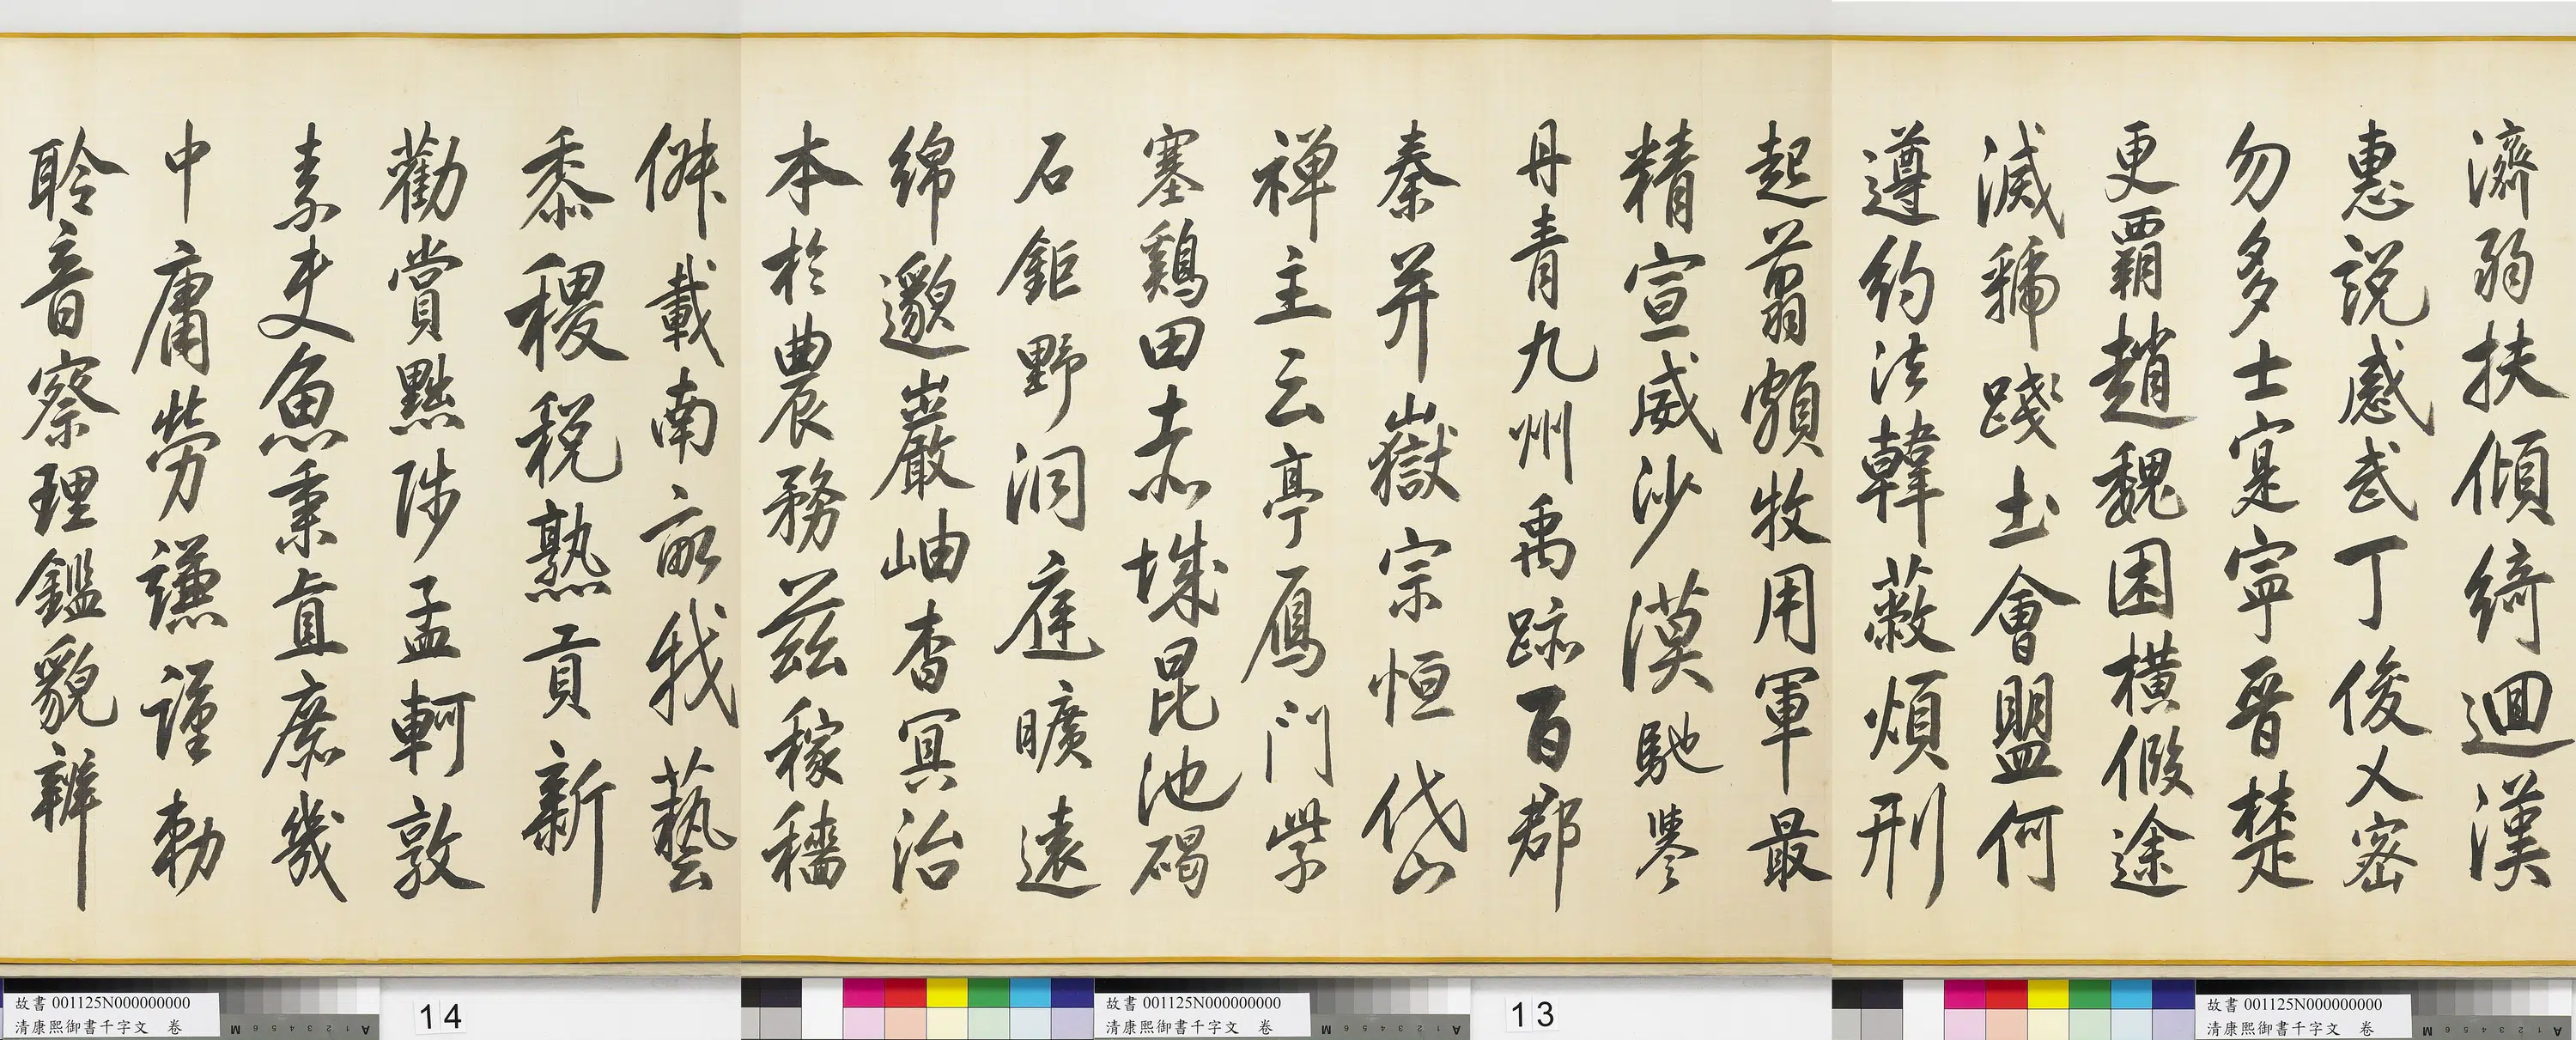 濟弱扶傾綺迴漢
惠說感武丁俊乂密
勿多士寔寧晉楚
更霸趙魏困橫假途
滅虢踐土會盟何
遵約法韓蔽煩刑
起翦頗牧用軍最
精宣威沙漠馳譽
丹青九州禹跡百郡
秦并嶽宗恒岱
禪主云亭鴈門紫
塞鷄田赤城昆池碣
石鉅野洞庭曠遠
綿邈巖岫杳冥治
本於農務茲稼穡
俶載南畝我藝
黍稷稅熟貢新
勸賞黜陟孟軻敦
素史魚秉直庶幾
中庸勞謙謹勅
聆音察理鑑貌辨
故書 001125N000000000
清康熙御書千字文 卷
13
故書 001125N000000000
清康熙御書千字文 卷
14
故書 001125N000000000
清康熙御書千字文 卷